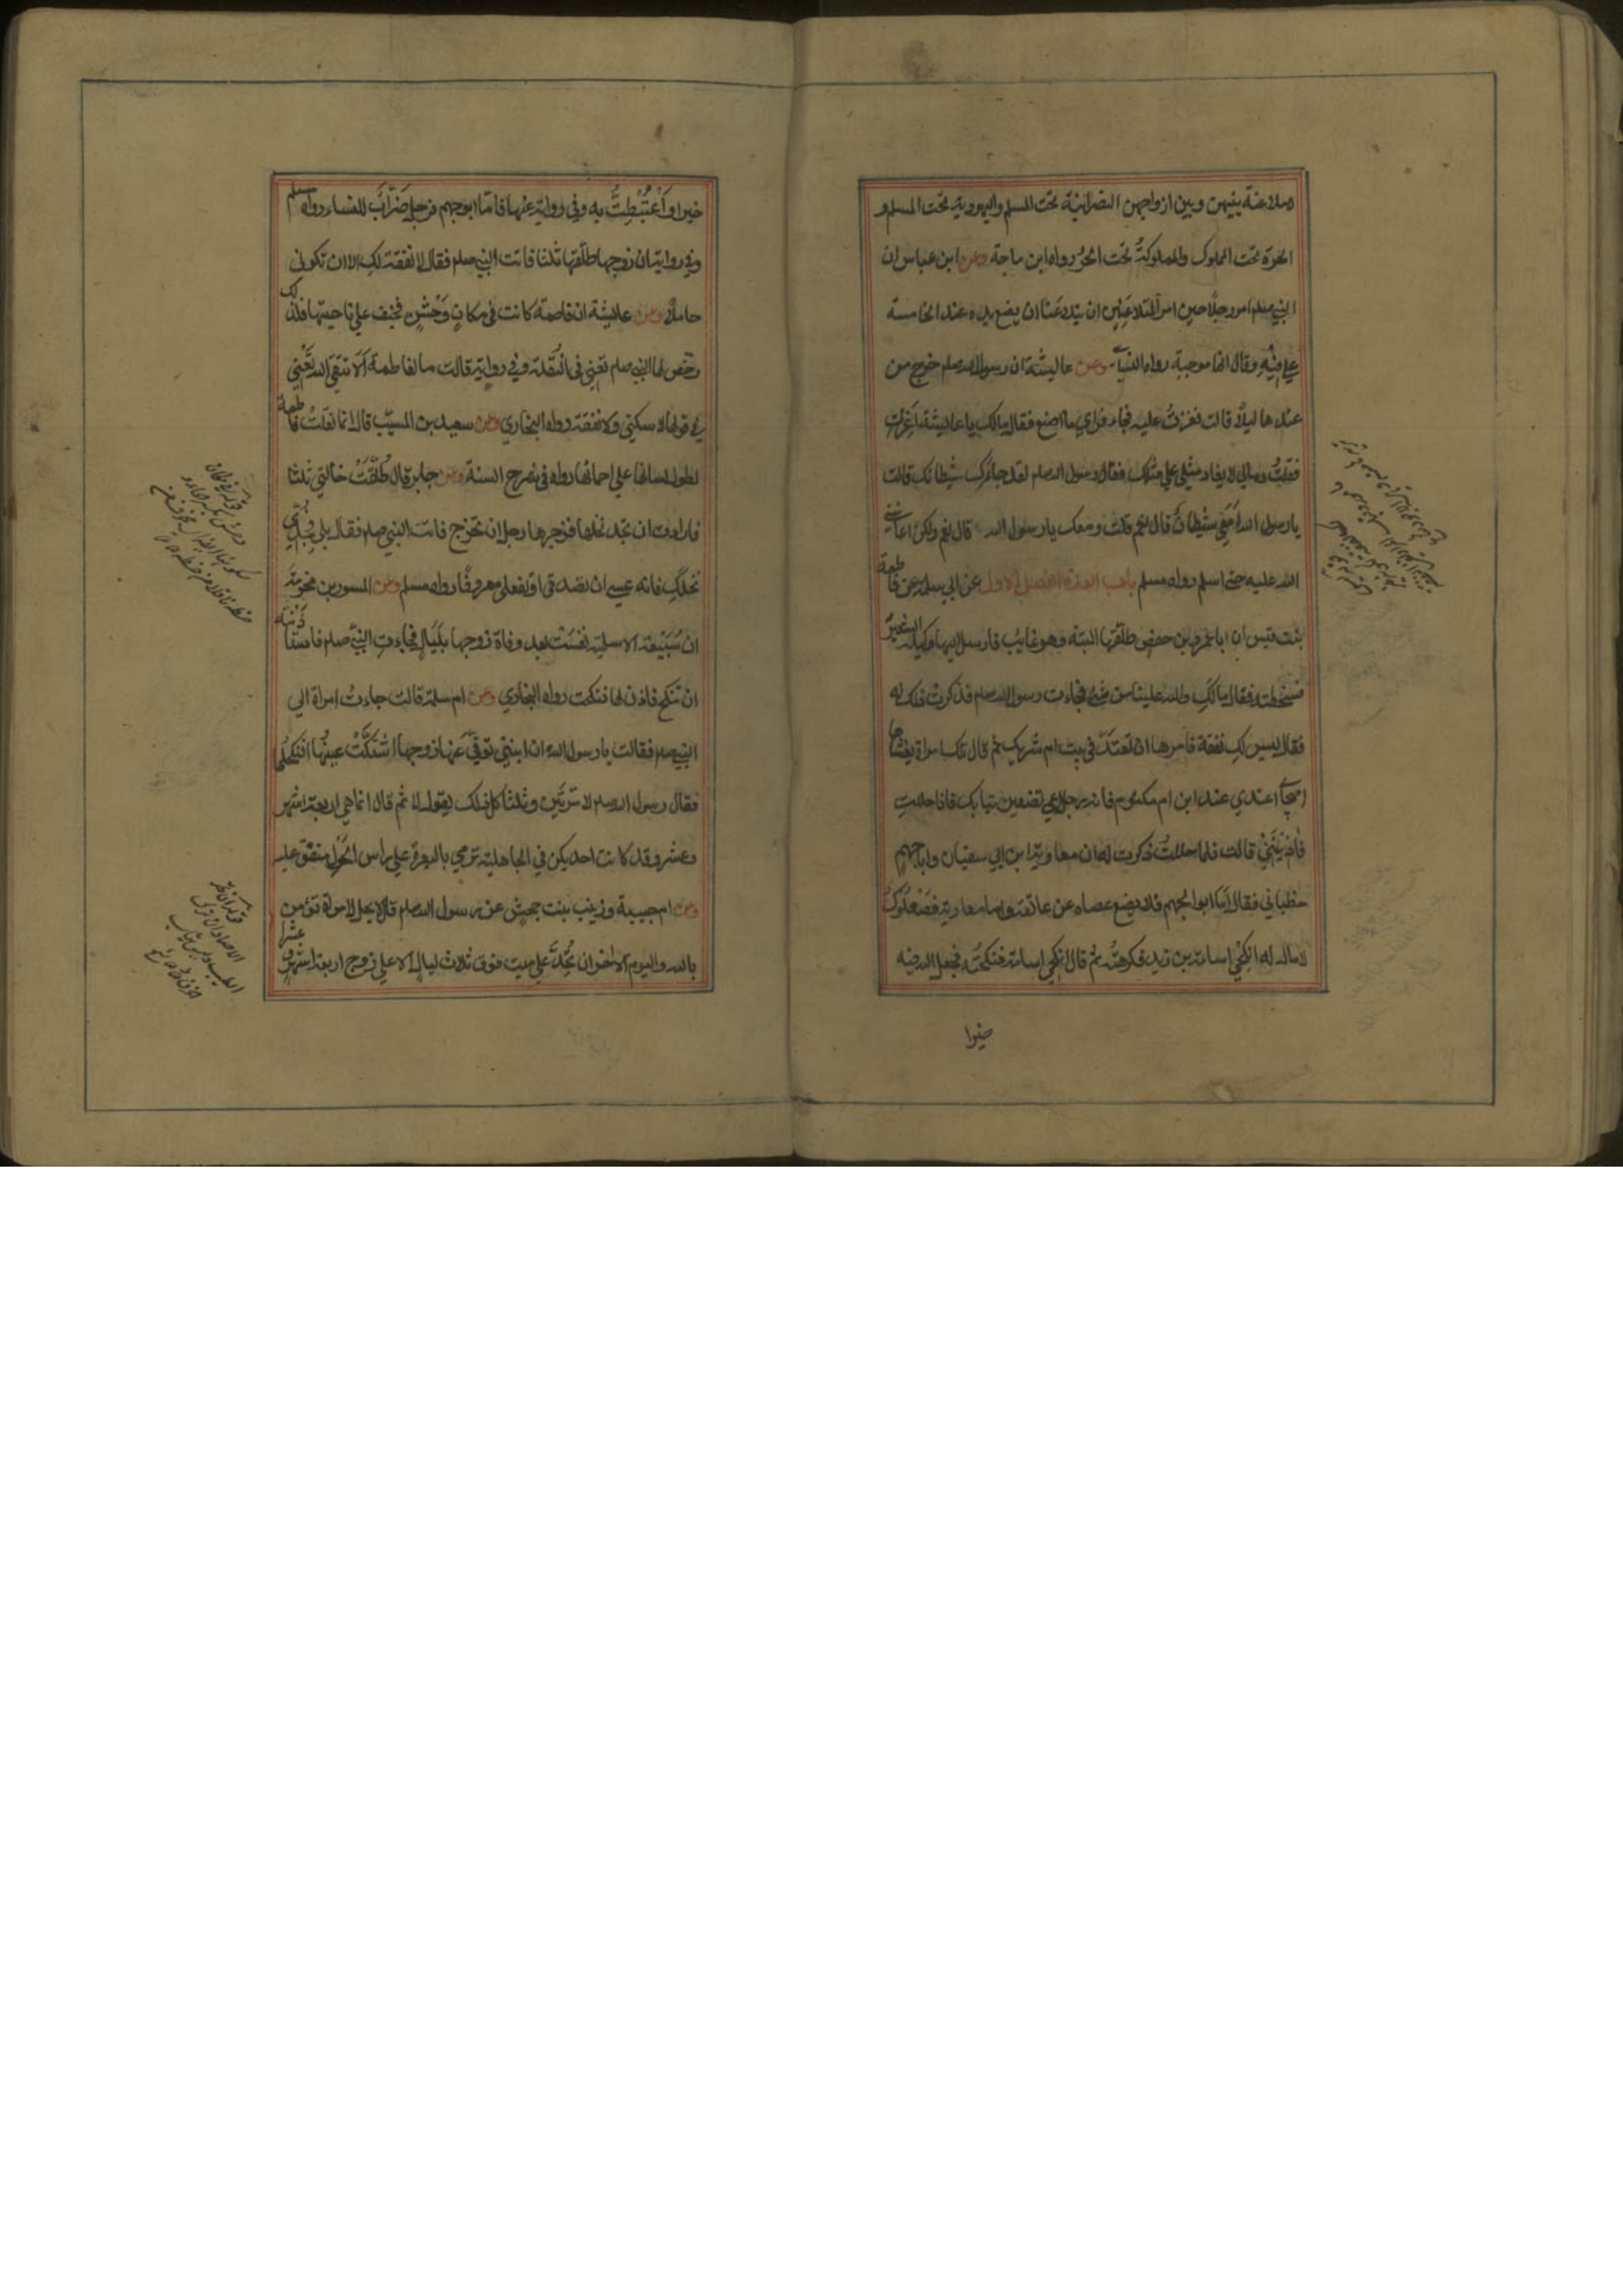 ملاعنة بينهن وبين ازواجهن النصرانية تحت المسلم واليهودية تحت المسلم و
الحرة تحت المملوك والمملوكة تحت الحر رواه ابن ماجة وعن ابن عباس ان
النبي صلم امر رجلا حين امر المتلاعنين ان يتلاعنا ان يضع يده عند الخامسة
علي فيه وقال انها موجبة رواه النسائي وعن عايشة ان رسول الله صلم خرج من
عندها ليلا قالت فغرت عليه فجاء فراي ما اصنع فقال مالك يا عايشة اغرت
فقلت ومالي لا يغار مثلي علي مثلك فقال رسول الله صلم لقد جاءك شيطانك قالت
يا رسول الله امعي شيطان قال نعم قلت ومعك يا رسول الله قال نعم ولكن اعانني
الله عليه حتي اسلم رواه مسلم باب العدة الفصل الاول عن ابي سلمة عن فاطمة
بنت قيس ان ابا عمرو بن حفص طلقها البتة وهو غايب فارسل اليها وكيله الشعير
فسخطته فقال مالك والله علينا من شيء فجاءت رسول الله صلم فذكرت ذلك له
فقال ليس لك نفقة فامرها ان تعتد في بيت ام شريك ثم قال تلك امراة يغشاها
اصحابي اعتدي عند ابن ام مكتوم فانه رجل اعمي تضعين ثيابك فاذا حللت
فاذنيني قالت فلما حللت ذكرت له ان معاوية ابن ابي سفيان وابا جهم
خطباني فقال اما ابو الجهم فلا يضع عصاه عن عاتقه واما معاوية فصعلوك
لا مال له انكحي اسامة بن زيد فكرهته ثم قال انكحي اسامة فنكحته فجعل الله فيه
خيرا
خيرا واغتبطت به وفي رواية عنها فاما ابو جهم فرجل ضراب للنساء رواه مسلم
وفي رواية ان زوجها طلقها ثلثا فاتت النبي صلم فقال لا نفقة لك الا ان تكوني
حاملا وعن عايشة ان فاطمة كانت في مكان وحش فخيف علي ناحيتها فلذلك
رخص لها النبي صلم تعني في النقلة وفي رواية قالت ما لفاطمة الا تتقي الله تعني
في قولها لا سكني ولا نفقة رواه البخاري وعن سعيد بن المسيب قال انما نقلت فاطمة
لطول لسانها علي احمائها رواه في شرح السنة وعن جابر قال طلقت خالتي ثلثا
فارادت ان تجد نخلها فزجرها رجل ان تخرج فاتت النبي صلم فقال بلي فجدي
نخلك فانه عسي ان تصدقي او تفعلي معروفا رواه مسلم وعن المسور بن مخرمة
ان سبيعة الاسلمية نفست بعد وفاة زوجها بليال فجاءت النبي صلم فاستاذنته
ان تنكح فاذن لها فنكحت رواه البخاري وعن ام سلمة قالت جاءت امراة الي
النبي صلم فقالت يا رسول الله ان ابنتي توفي عنها زوجها اشتكت عينها افنكحلها
فقال رسول الله صلم لا مرتين وثلثا كل ذلك يقول لا ثم قال انما هي اربعة اشهر
وعشر وقد كانت احديكن في الجاهلية ترمي بالبعرة علي راس الحول متفق عليه
وعن ام حبيبة وزينب بنت جحش عن رسول الله صلم قال لا يحل لامراة تؤمن
بالله واليوم الاخر ان تحد علي ميت فوق ثلاث ليال الا علي زوج اربعة اشهر وعشرا